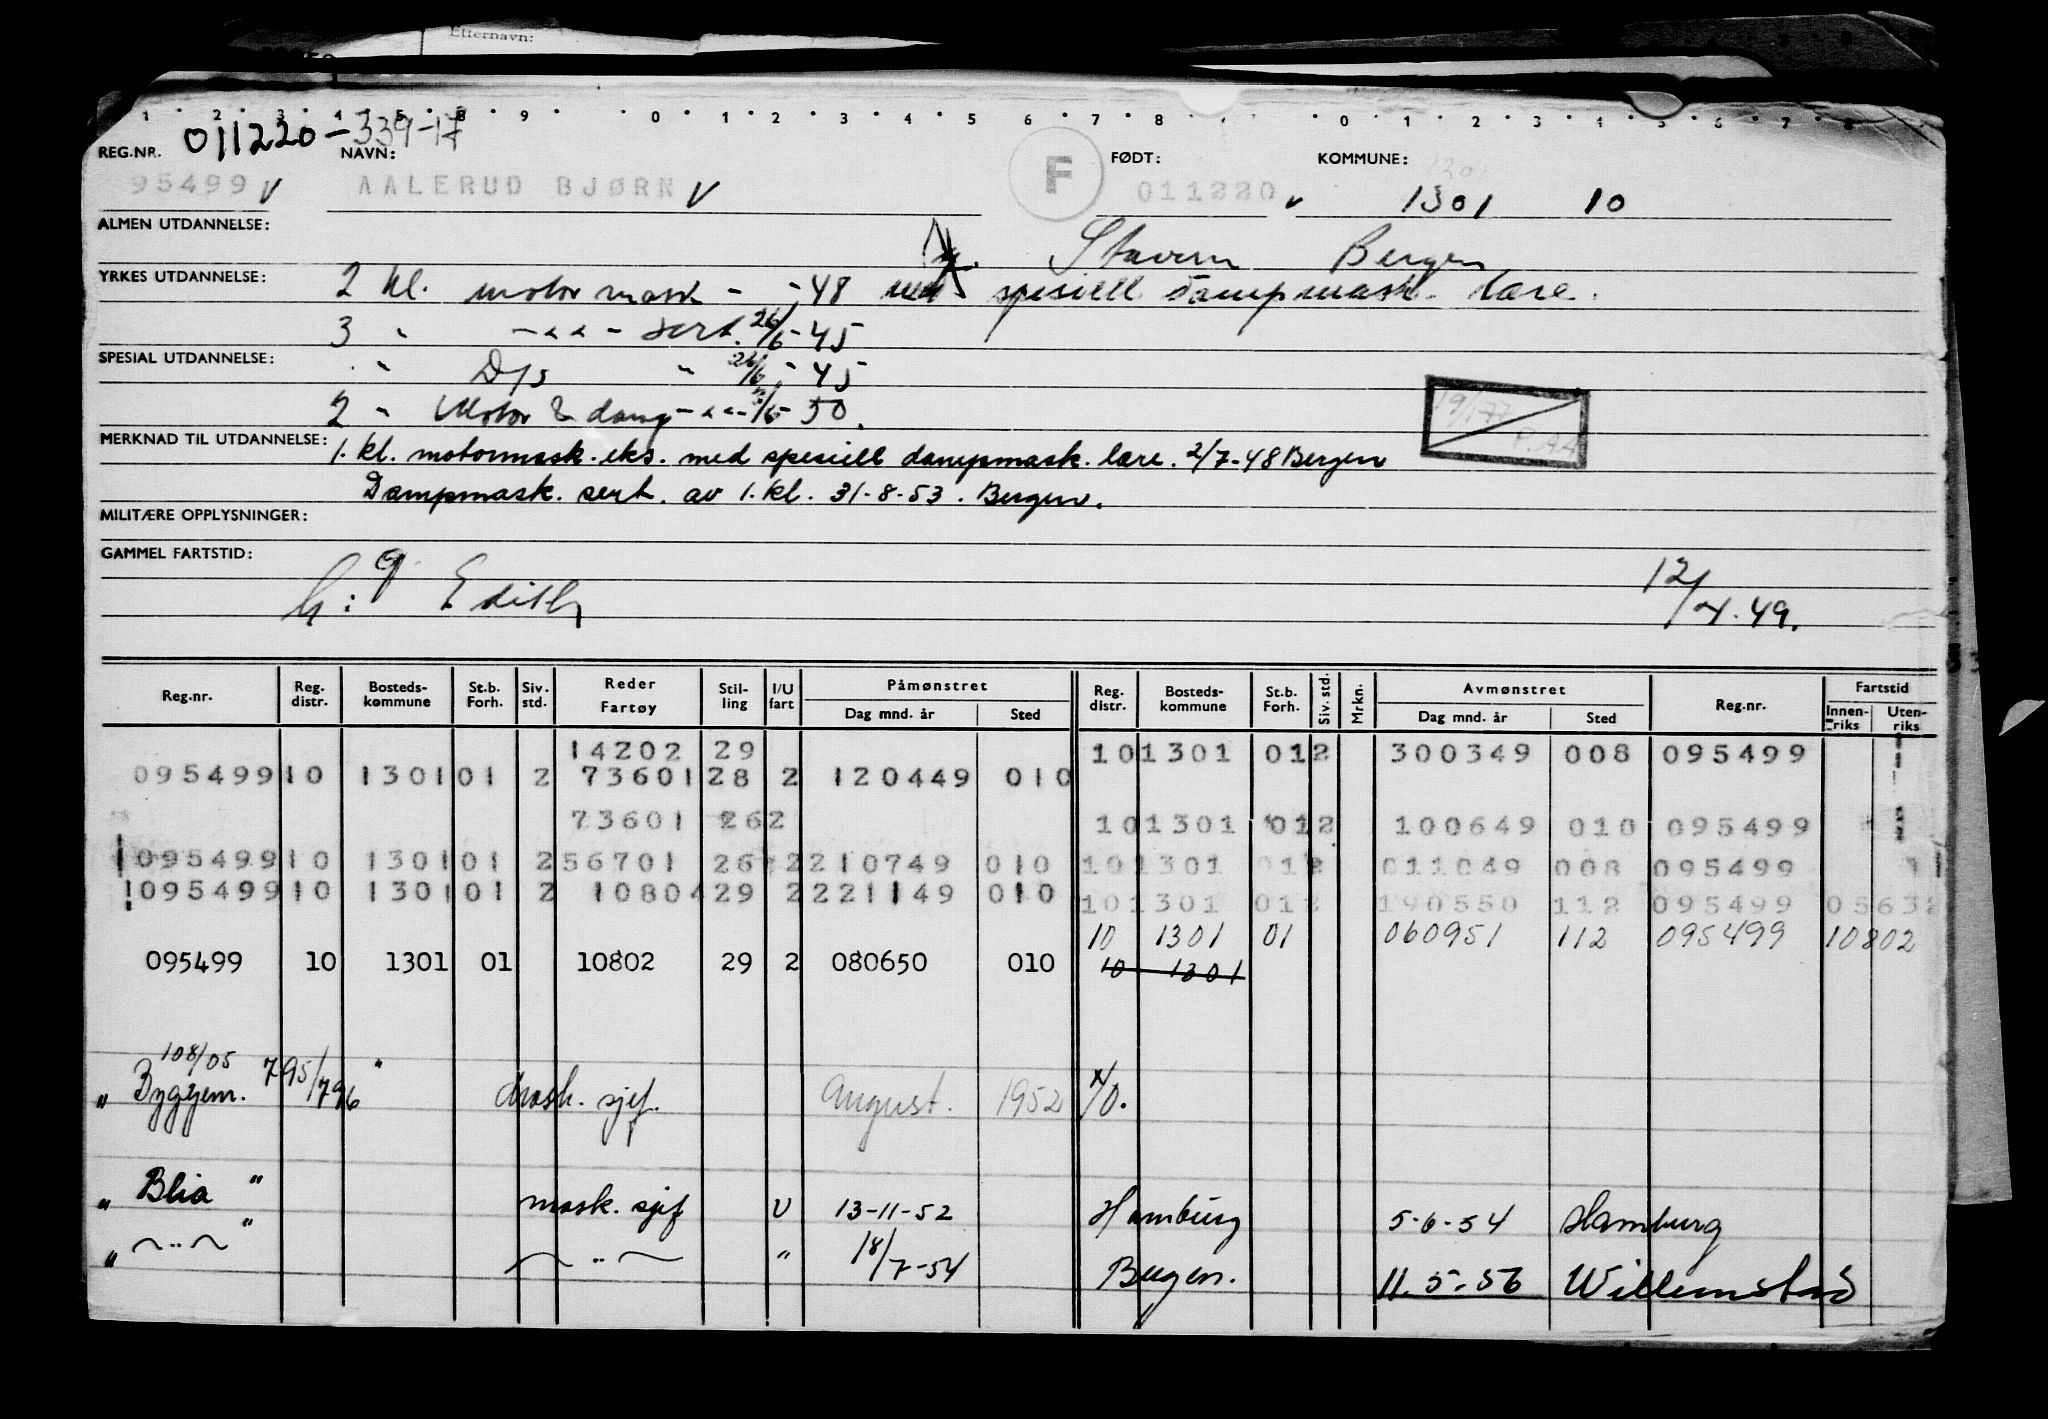 Efternavn:
1 2 3 4 5 6 8 9 0 1 2 3 4 5 6 7 8 0 1 2 3 4 5 6 7 8
REG.NR. 011220-339-17 NAVN: F FØDT: KOMMUNE: 1301
95499 V AALERUD BJØRN V 011220 v 1301 10
ALMEN UTDANNELSE:
Stavern Bergen
YRKES UTDANNELSE: 2 kl. motor mask - - 48 med spesiell dampmask. lære.
3 " -"- sert. 26/6 - 45
SPESIAL UTDANNELSE: " D/s " 26/6 - 45
2 " Motor & damp -"- /6- 50.
MERKNAD TIL UTDANNELSE: 1. kl. motormask. eks. med spesiell dampmask. lære. 2/7-48 Bergen
Dampmask. sert. av 1. kl. 31-8-53. Bergen.
MILITÆRE OPPLYSNINGER:
GAMMEL FARTSTID:
Edith 12/4.49.
Reg.nr. Reg. distr. Bosteds-kommune St.b. Forh. Siv. std. Reder Fartøy Stil-ling I/U fart Påmønstret Dag mnd. år Sted Reg. distr. Bosteds-kommune St.b. Forh. Siv. std. Mrkn. Avmønstret Dag mnd. år Sted Reg.nr. Fartstid Innen-riks Uten-riks
14202 29 10 1301 01 2 300349 008 095499
095499 10 1301 01 2 73601 28 2 120449 010
73601 26 2 10 1301 01 2 100649 010 095499
095499 10 1301 01 2 56701 26 2 210749 010 10 1301 01 2 011049 008 095499
095499 10 1301 01 2 10804 29 2 221149 010 10 1301 01 2 190550 112 095499 05632
10 1301 01 060951 112 095499 10802
095499 10 1301 01 10802 29 2 080650 010 10 1301
108/05
" Byggenr. 795/796 " Mask. sjef. August. 1952
" Blia " mask. sjef U 13-11-52 Hamburg 5-6-54 Hamburg
" ~"~ " ~"~ " 18/7-54 Bergen. 11.5.56 Willemstad